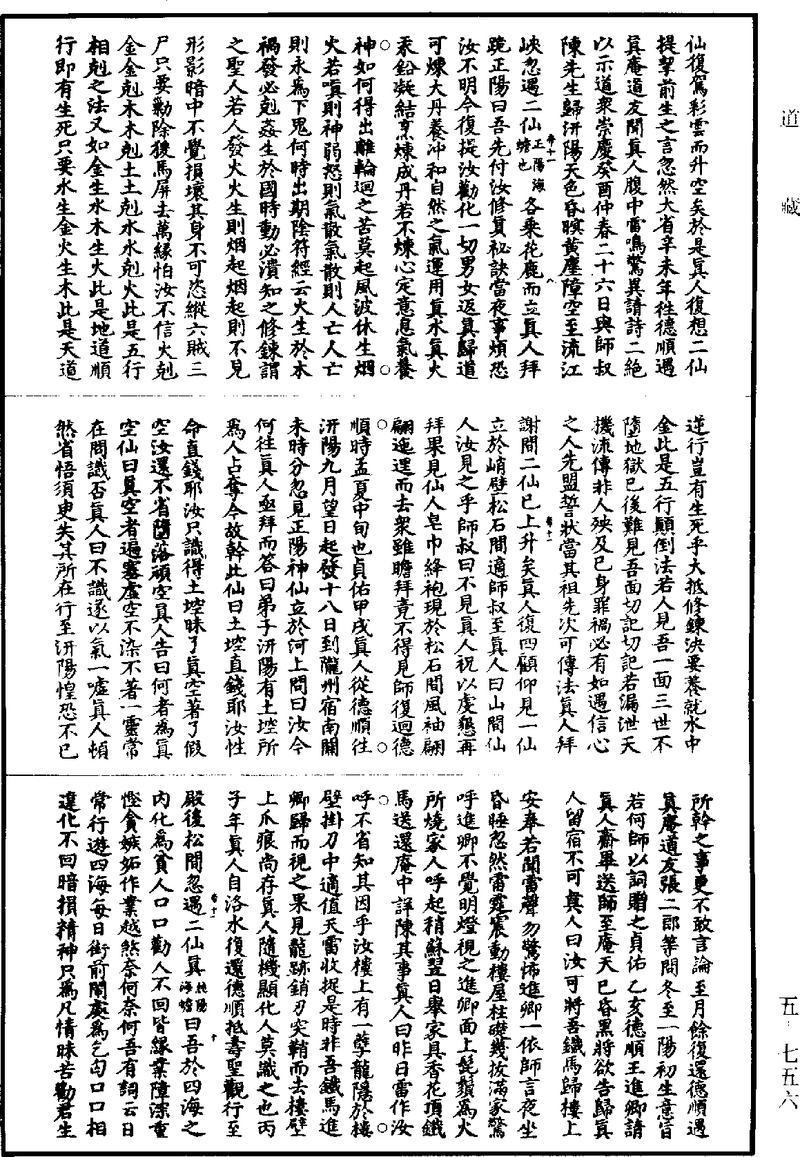 道藏
仙復駕彩雲而升空矣於是真人復想二仙
提挈前生之言忽然大省辛未年往德順遇
真庵道友聞真人腹中雷鳴驚異請詩二絕
以示道衆崇慶癸酉仲春二十六日與師叔
陳先生歸汧陽天色昏暝黃塵障空至流江
峽忽遇二仙正陽海蟾也各乘花鹿而立真人拜
跪正陽曰吾先付汝修真祕訣當夜事煩恐
汝不明今復提汝勸化一切男女返真歸道
可煉大丹養沖和自然之氣運用真水真火
汞鉛凝結烹煉成丹若不煉心定意息氣養
神如何得出離輪迴之苦莫起風波休生烟
火若嗔則神弱怒則氣散氣散則人亡人亡
則永為下鬼何時出期陰符經云火生於木
禍發必剋姦生於國時動必潰知之修鍊謂
之聖人若人發火火生則烟起烟起則不見
形影暗中不覺損壞其身不可恣縱六賊三
尸只要勤除猿馬屏去萬緣怕汝不信火剋
金金剋木木剋土土剋水水剋火此是五行
相剋之法又如金生水木生火此是地道順
行即有生死只要水生金火生木此是天道
逆行豈有生死乎大抵修鍊決要養就水中
金此是五行顛倒法若人見吾一面三世不
墮地獄已後難見吾面切記切記若漏泄天
機流傳非人殃及已身罪禍必有如遇信心
之人先盟誓狀當其祖先次可傳法真人拜
謝問二仙已上升矣真人復四顧仰見一仙
立於峭壁松石間適師叔至真人曰山間仙
人汝見之乎師叔曰不見真人祝以虔懇再
拜果見仙人皂巾絳袍現於松石間風袖翩
翩迤逕而去衆雖瞻拜竟不得見師復迴德
順時孟夏中旬也貞佑甲戌真人從德順往
汧陽九月望日起發十八日到隴州宿南關
未時分忽見正陽神仙立於河上問曰汝今
何往真人亟拜而答曰弟子汧陽有土垥所
為人占奪今故幹此仙曰土垥直錢耶汝性
命直錢耶汝只識得土垥昧了真空著了假
空汝還不省墮落頑空真人告曰何者為真
空仙曰真空者遍塞虛空不染不著一靈常
在問識否真人曰不識遂以氣一噓真人頓
然省悟須臾失其所在行至汧陽惶恐不已
所幹之事更不敢言論至月餘復還德順遇
真庵道友張二郎等問冬至一陽初生意旨
若何師以詞贈之貞佑乙亥德順王進卿請
真人齋畢送師至庵天已昏黑將欲告歸真
人留宿不可真人曰汝可將吾鐵馬歸樓上
安奉若聞雷聲勿驚怖進卿一依師言夜坐
昏睡忽然雷霆震動樓屋柱礎幾拔滿家驚
呼進卿不覺明燈視之進卿面上髭鬚為火
所燒家人呼起稍穌翌日舉家具香花頂鐵
馬送還庵中詳陳其事真人曰昨日雷作汝
呼不省知其因乎汝樓上有一孽龍隱於樓
壁掛刀中適值天雷收捉是時非吾鐵馬進
卿歸而視之果見龍跡銷刃突鞘而去樓壁
上爪痕尚存真人隨機顯化人莫識之也丙
子年真人自洛水復還德順抵壽聖觀行至
殿後松間忽遇二仙真純陽海蟾曰吾於四海之
內化為貧人口口勸人不回皆緣業障深重
慳貪嫉妬作業越煞奈何奈何吾有詞云日
常行遊四海每日街前鬧處為乞匃口口相
違化不回暗損精神只為凡情昧苦勸君生
五·七五六